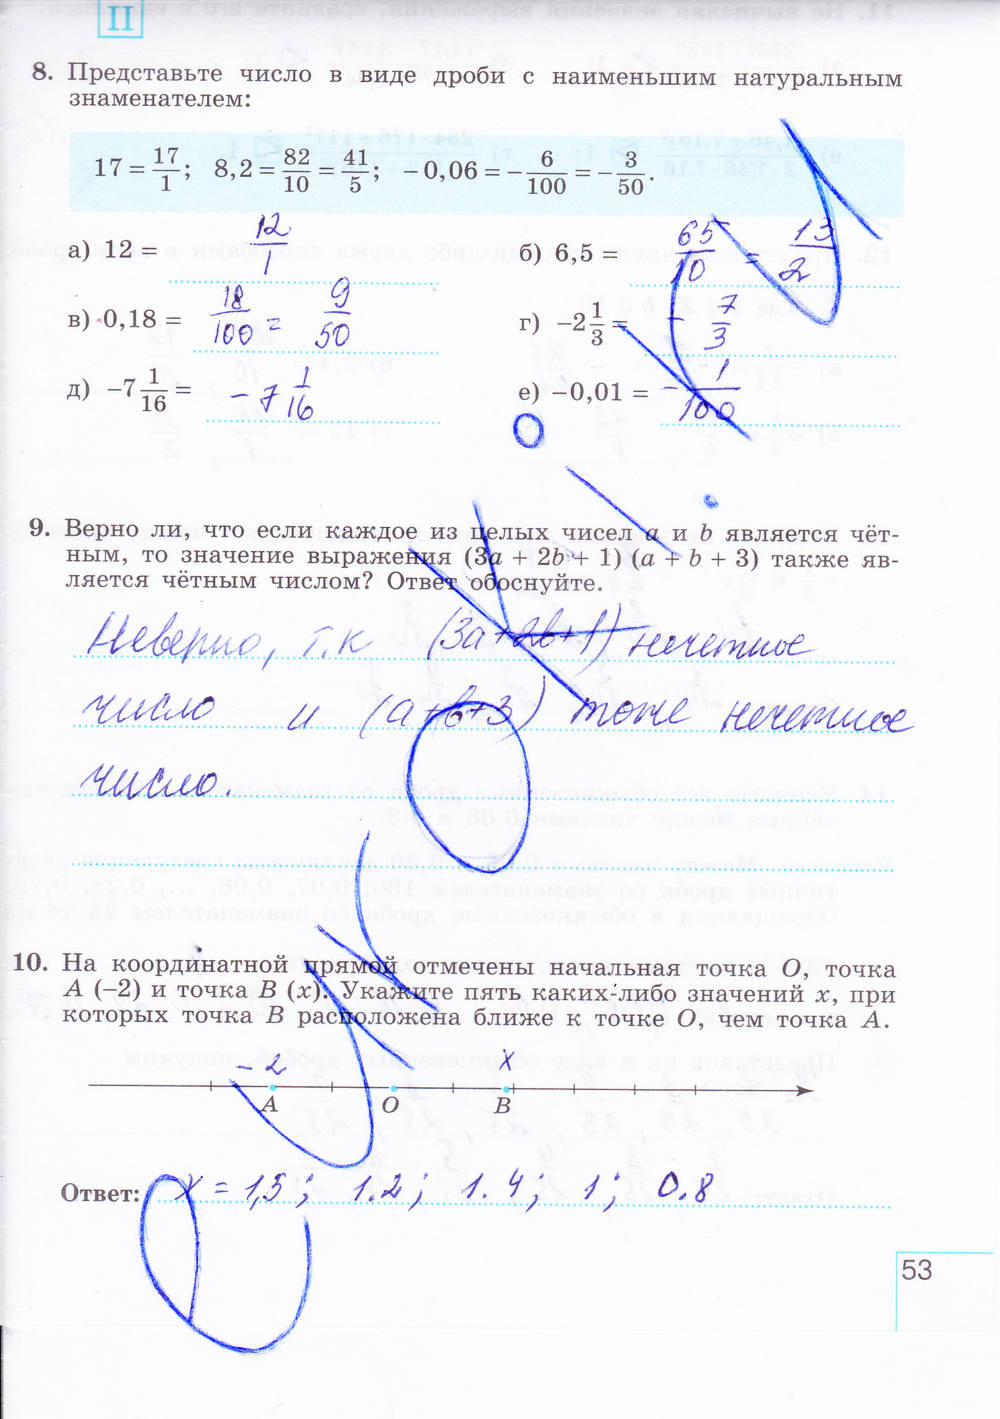 II
8. Представьте число в виде дроби с наименьшим натуральным
знаменателем:
17 = 17/1; 8,2 = 82/10 = 41/5; −0,06 = −6/100 = −3/50.
а) 12 = 12/1 б) 6,5 = 65/10 = 13/2
в) 0,18 = 18/100 = 9/50 г) −2 1/3 = − 7/3
д) −7 1/16 = −7 1/16 е) −0,01 = −1/100
9. Верно ли, что если каждое из целых чисел a и b является чёт-
ным, то значение выражения (3a + 2b + 1) (a + b + 3) также яв-
ляется чётным числом? Ответ обоснуйте.
Неверно, т.к (3a+2b+1) нечетное
число и (a+b+3) тоже нечетное
число.
10. На координатной прямой отмечены начальная точка O, точка
A (−2) и точка B (x). Укажите пять каких-либо значений x, при
которых точка B расположена ближе к точке O, чем точка A.
−2 x
A O B
Ответ: x = 1,5; 1.2; 1.4; 1; 0.8
53